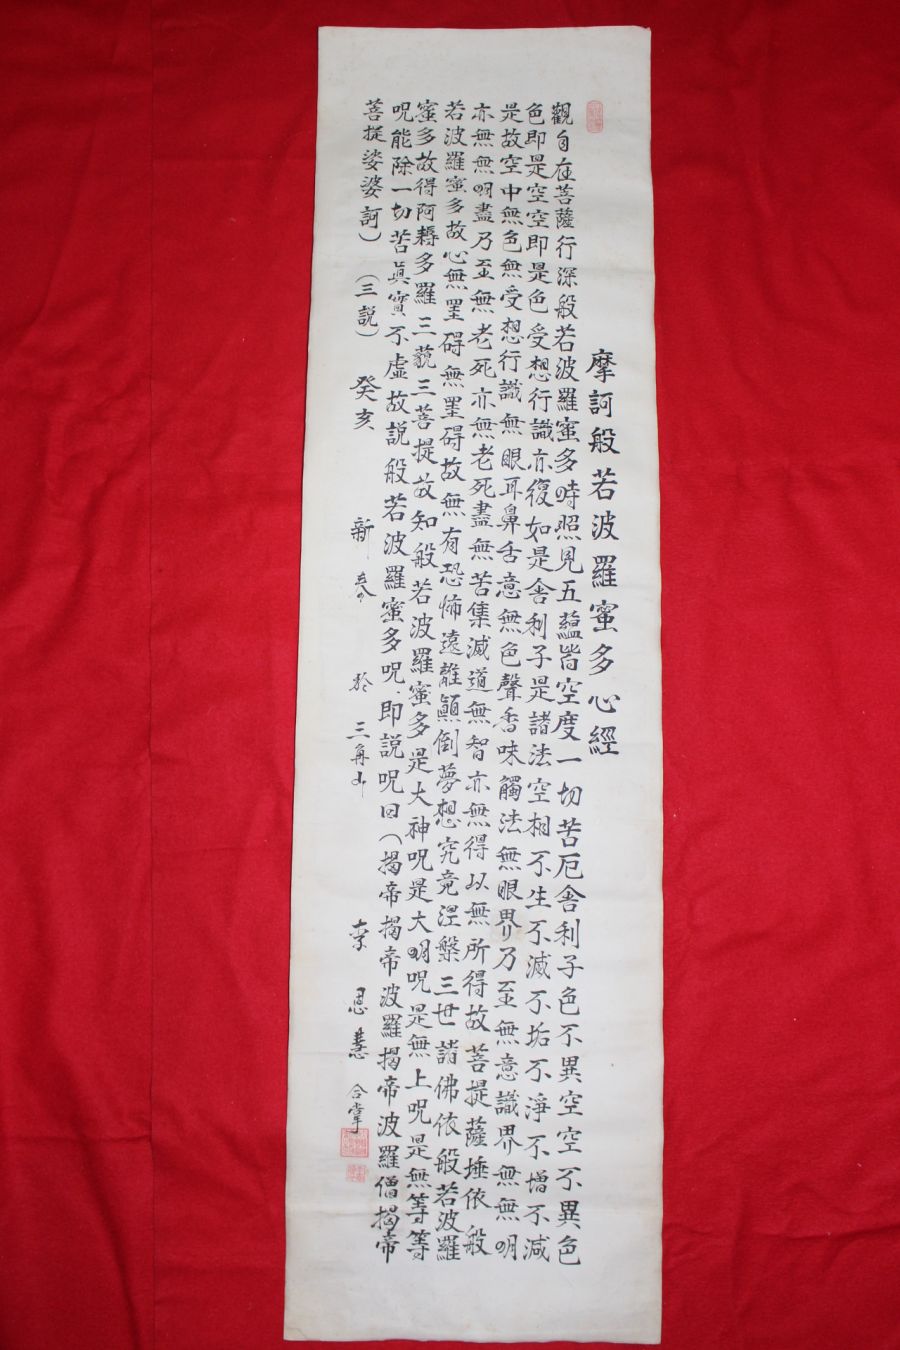 摩訶般若波羅蜜多心經
觀自在菩薩行深般若波羅蜜多時照見五蘊皆空度一切苦厄舍利子色不異空空不異色
色即是空空即是色受想行識亦復如是舍利子是諸法空相不生不滅不垢不淨不增不減
是故空中無色無受想行識無眼耳鼻舌意無色聲香味觸法無眼界乃至無意識界無無明
亦無無明盡乃至無老死亦無老死盡無苦集滅道無智亦無得以無所得故菩提薩埵依般
若波羅蜜多故心無罣碍無罣碍故無有恐怖遠離顚倒夢想究竟涅槃三世諸佛依般若波羅
蜜多故得阿耨多羅三藐三菩提故知般若波羅蜜多是大神呪是大明呪是無上呪是無等等
呪能除一切苦眞實不虛故說般若波羅蜜多呪即說呪曰（揭帝揭帝波羅揭帝波羅僧揭帝
菩提娑婆訶）（三説）癸亥 新春 於 三角山 李 恩慧 合掌